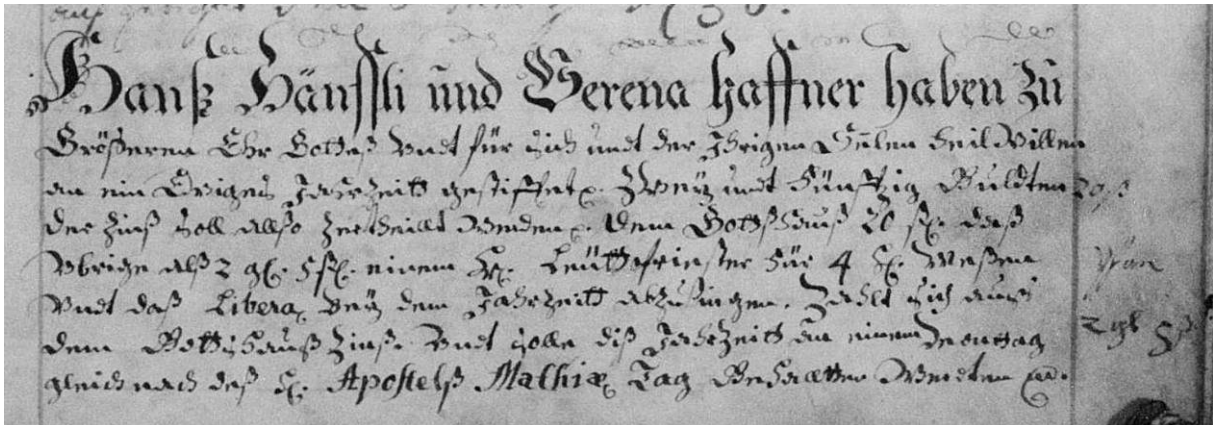 Hanß Hänssli und Verena Haffner haben zu
Größeren Ehr Gottes Vndt für sich undt der Ihrigen Seelen Heil Willen
an ein Ewiges Jahrzeitt gestifftet Zweÿ undt Fünfftzig Guldten
der Zinß soll allso zertheillt Werden. Dem Gottshauß 20 ßl. daß
Vbrige alß 2 gl. 5 ßl. einem Hr. Leüttpriester für 4 H. Meßen
Vndt daß Libera beÿ dem Jahrzeitt abzusingen. Zahlt sich auß
dem Gottshauß Zinß. Vndt solle diß Jahrzeitt an einem Donstag
gleich nach deß H. Apostelß Mathiæ Tag Gehaltten Werden
20 ß
2 gl 5 ß